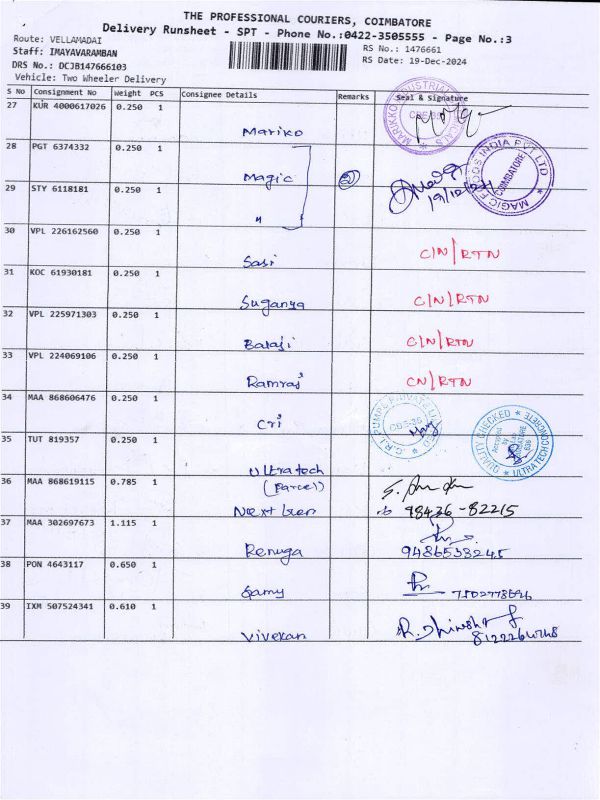 THE PROFESSIONAL COURIERS, COIMBATORE
Delivery Runsheet - SPT - Phone No.:0422-3505555 - Page No.:3
Route: VELLAMADAI
Staff: IMAYAVARAMBAN
DRS No.: DCJB147666103
Vehicle: Two Wheeler Delivery
RS No.: 1476661
RS Date: 19-Dec-2024
S No Consignment No Weight PCS Consignee Details Remarks Seal & Signature
27 KUR 4000617026 0.250 1
Mariko
28 PGT 6374332 0.250 1
Magic
MAGIC FOODS INDIA PVT LTD COIMBATORE
29 STY 6118181 0.250 1
19/12/24
"
30 VPL 226162560 0.250 1
Sasi C/N/RTN
31 KOC 61930181 0.250 1
Suganya C/N/RTN
32 VPL 225971303 0.250 1
Balaji C/N/RTN
33 VPL 224069106 0.250 1
Ramraj CN/RTN
34 MAA 868606476 0.250 1
Cri
C.R.I. PUMPS PRIVATE LIMITED
35 TUT 819357 0.250 1
QUALITY CHECKED
ULTRA TECH CONCRETE
Ultratech
36 MAA 868619115 0.785 1
(Parcel)
Next ben 98436-82215
37 MAA 302697673 1.115 1
Renuga 9486533245
38 PON 4643117 0.650 1
Samy
39 IXM 507524341 0.610 1
Vivekan